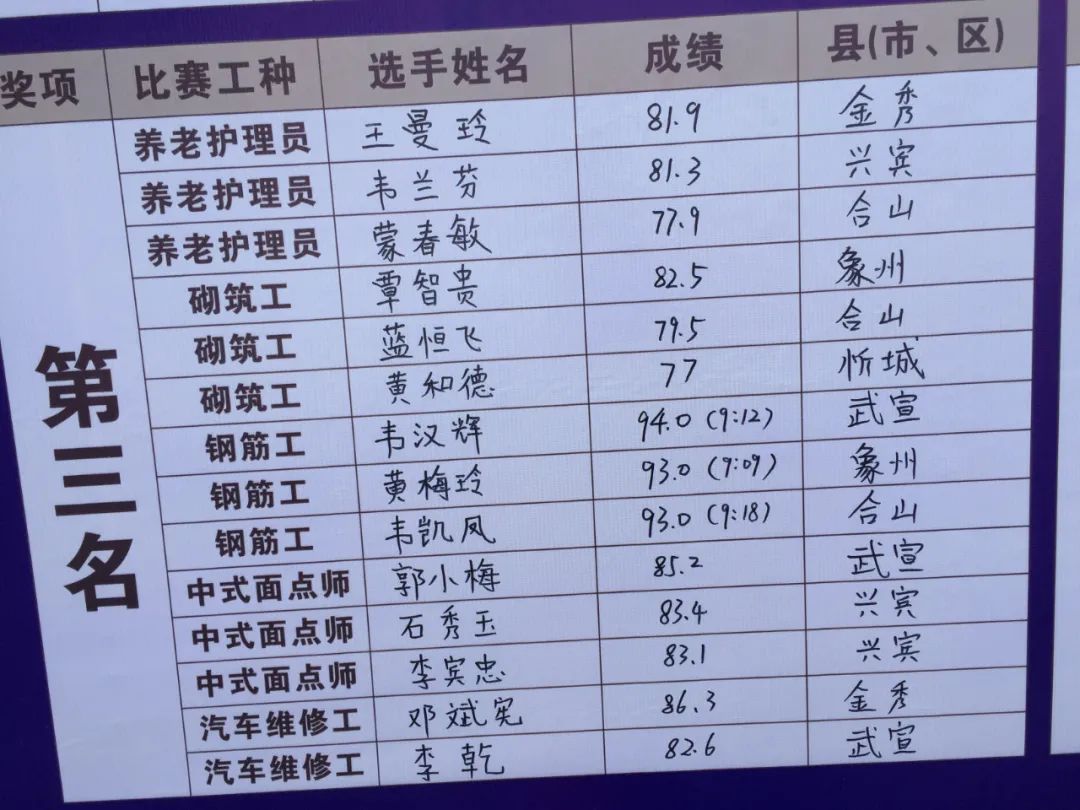 奖项 比赛工种 选手姓名 成绩 县(市、区)
第三名
养老护理员 王曼玲 81.9 金秀
养老护理员 韦兰芬 81.3 兴宾
养老护理员 蒙春敏 77.9 合山
砌筑工 覃智贵 82.5 象州
砌筑工 蓝恒飞 79.5 合山
砌筑工 黄和德 77 忻城
钢筋工 韦汉辉 94.0 (9:12) 武宣
钢筋工 黄梅玲 93.0 (9:09) 象州
钢筋工 韦凯凤 93.0 (9:18) 合山
中式面点师 郭小梅 85.2 武宣
中式面点师 石秀玉 83.4 兴宾
中式面点师 李宾忠 83.1 兴宾
汽车维修工 邓斌宪 86.3 金秀
汽车维修工 李乾 82.6 武宣